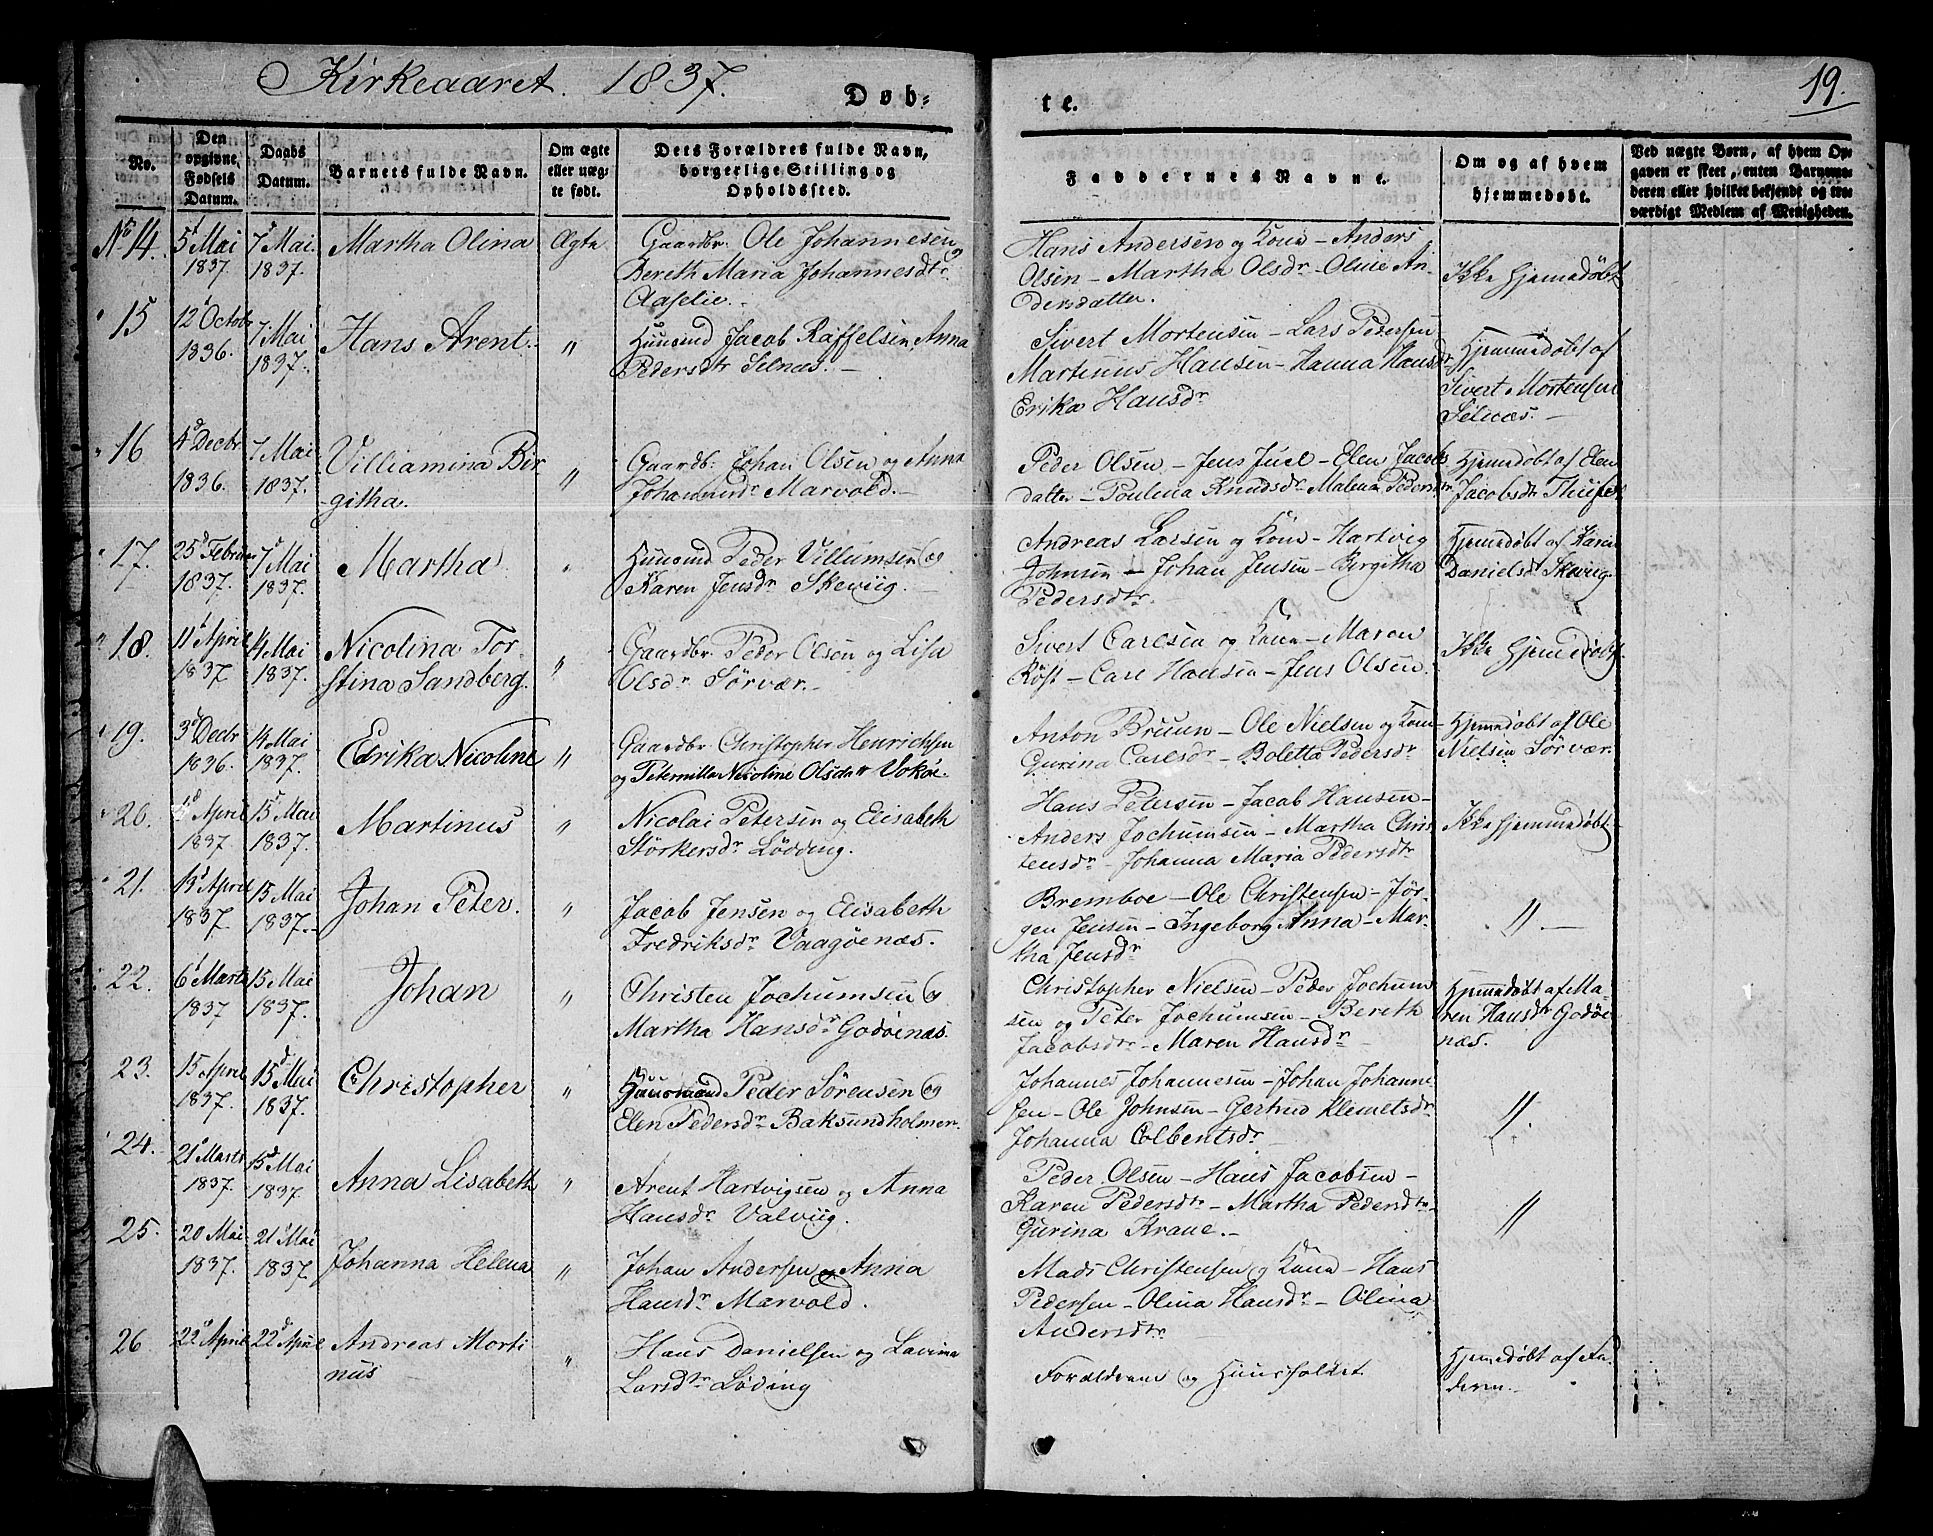 Kirkeaaret. 1837.
Døb-
te.
19.
No.
Den opgivne Fødsels Datum.
Daabs Datum.
Barnets fulde Navn.
Om ægte eller uægte født.
Dets Forældres fulde Navn, borgerlige Stilling og Opholdsfted.
Faddernes Navne.
Om og af hvem hjemmedøbt.
Ved uægte Børn, af hvem Opgaven er skeet, enten Barnemoderen eller hvilket bekjendt og troværdigt Medlem af Menigheden.
No 14. 5t Mai 1837 7d Mai. 1837. Martha Olina Ægte
Gaardbr. Ole Johannesen og
Bereth Maria Johannesdtr
Aaselie.
Hans Andersen og Kona - Anders
Olsen - Martha Olsdr - Oline An-
dersdatter.
Ikke Hjemedøbt
15 12t Octobr 1836. 7 Mai 1837. Hans Arent. "
Huusmd Jacob Raffelsen, Anna
Pedersdtr Selnæs. -
Sivert Mortensen - Lars Pedersen
Martinus Hansen - Hanna Hansdr
Erika Hansdr
Hjemmedøbt af
Sivert Mortensen
Selnæs. -
16 4d Decbr 1836. 7 Mai 1837. Villiamina Bir-
githa. "
Gaardb. Johan Olsen og Anna
Johannsdr Marvold. -
Peder Olsen - Jens Juel - Elen Jacobs
datter - Poulena Knudsdr - Malena Pedersdtr
Hjemedøbt af Elen
Jacobsdtr
17. 25d Februar 1837. 7d Mai 1837. Martha "
Huusmd Peder Villumsen og
Karen Jensdr Skeviig. -
Andreas Larsen og Kona - Hartvig
Johnsen - Johan Jensen - Birgitha
Pedersdtr.
Hjemedøbt af Karen
Danielsdt Skeviig.
18. 11t April 1837 14 Mai 1837. Nicolina Tor-
stina Sandberg. "
Gaardbr. Peder Olsen og Lisa
Olsdr Sørvær. -
Sivert Carlsen og Kona - Maren
Röst - Carl Hansen - Jens Olsen.
Ikke Hjemedøbt.
19. 3d Decbr 1836. 14 Mai 1837. Edrika Nicoline "
Gaardbr Christopher Henrichsen
og Petermilla Nicoline Olsdatt Vokøe.
Anton Bruun - Ole Nielsen og Kone
Gurina Carlsdr - Boletta Pedersdr
Hjemedøbt af Ole
Nielsen Sørvær.
20. April 1837 15d Mai 1837. Martinus "
Nicolai Petersen og Elisabeth
Storkersdr Lødding.
Hans Petersen - Jacob Hansen -
Anders Jochumsen - Martha Chris
tensdr - Johanna Maria Pedersdtr
Ikke Hjemmedøbt
21. 13d April 1837. 15 Mai 1837. Johan Peter. "
Jacob Jensen og Elisabeth
Fredriksdr Vaagøenæs.
Bremboe - Ole Christensen - Jör-
gen Jensen - Ingeborg Anna - Mar-
tha Jensdr
" -
22. 6t Marts 1837 15 Mai 1837. Johan "
Christen Jochumsen og
Martha Hansdr Godøenæs.
Christopher Nielsen - Peder Jochum
sen og Peter Jochumsen - Bereth
Jacobsdtr - Maren Hansdr -
Hjemedøbt af Ma-
ren Hansdtr Godøe
næs.
23. 15 April 1837. 15d Mai 1837. Christopher "
Huusmand Peder Sörensen og
Elen Pedersdr Baksundholmen.
Johannes Johannesen - Johan Johanne
sen - Ole Johnsen - Gertrud Klemetsdr
Johanna Colbentsdr -
"
24. 21d Marts 1837. 15d Mai 1837 Anna Lisabeth "
Arent Hartvigsen og Anna
Hansdr Valviig.
Peder Olsen - Hans Jacobsen -
Karen Pedersdtr - Martha Pedersdtr -
Gurina Krane. -
"
25. 20 Mai 1837. 21t Mai 1837 Johanna Helena "
Johan Andersen og Anna
Hansdr Marvold.
Mads Christensen og Kona - Hans
Pedersen - Olina Hansdr - Olina
Andersdtr
26 22d April 22d April Andreas Morti
nus "
Hans Danielsen og Lavina
Larsdtr Løding
Forældrene og Huusfolket
Hjemedøbt af Fa
deren. -